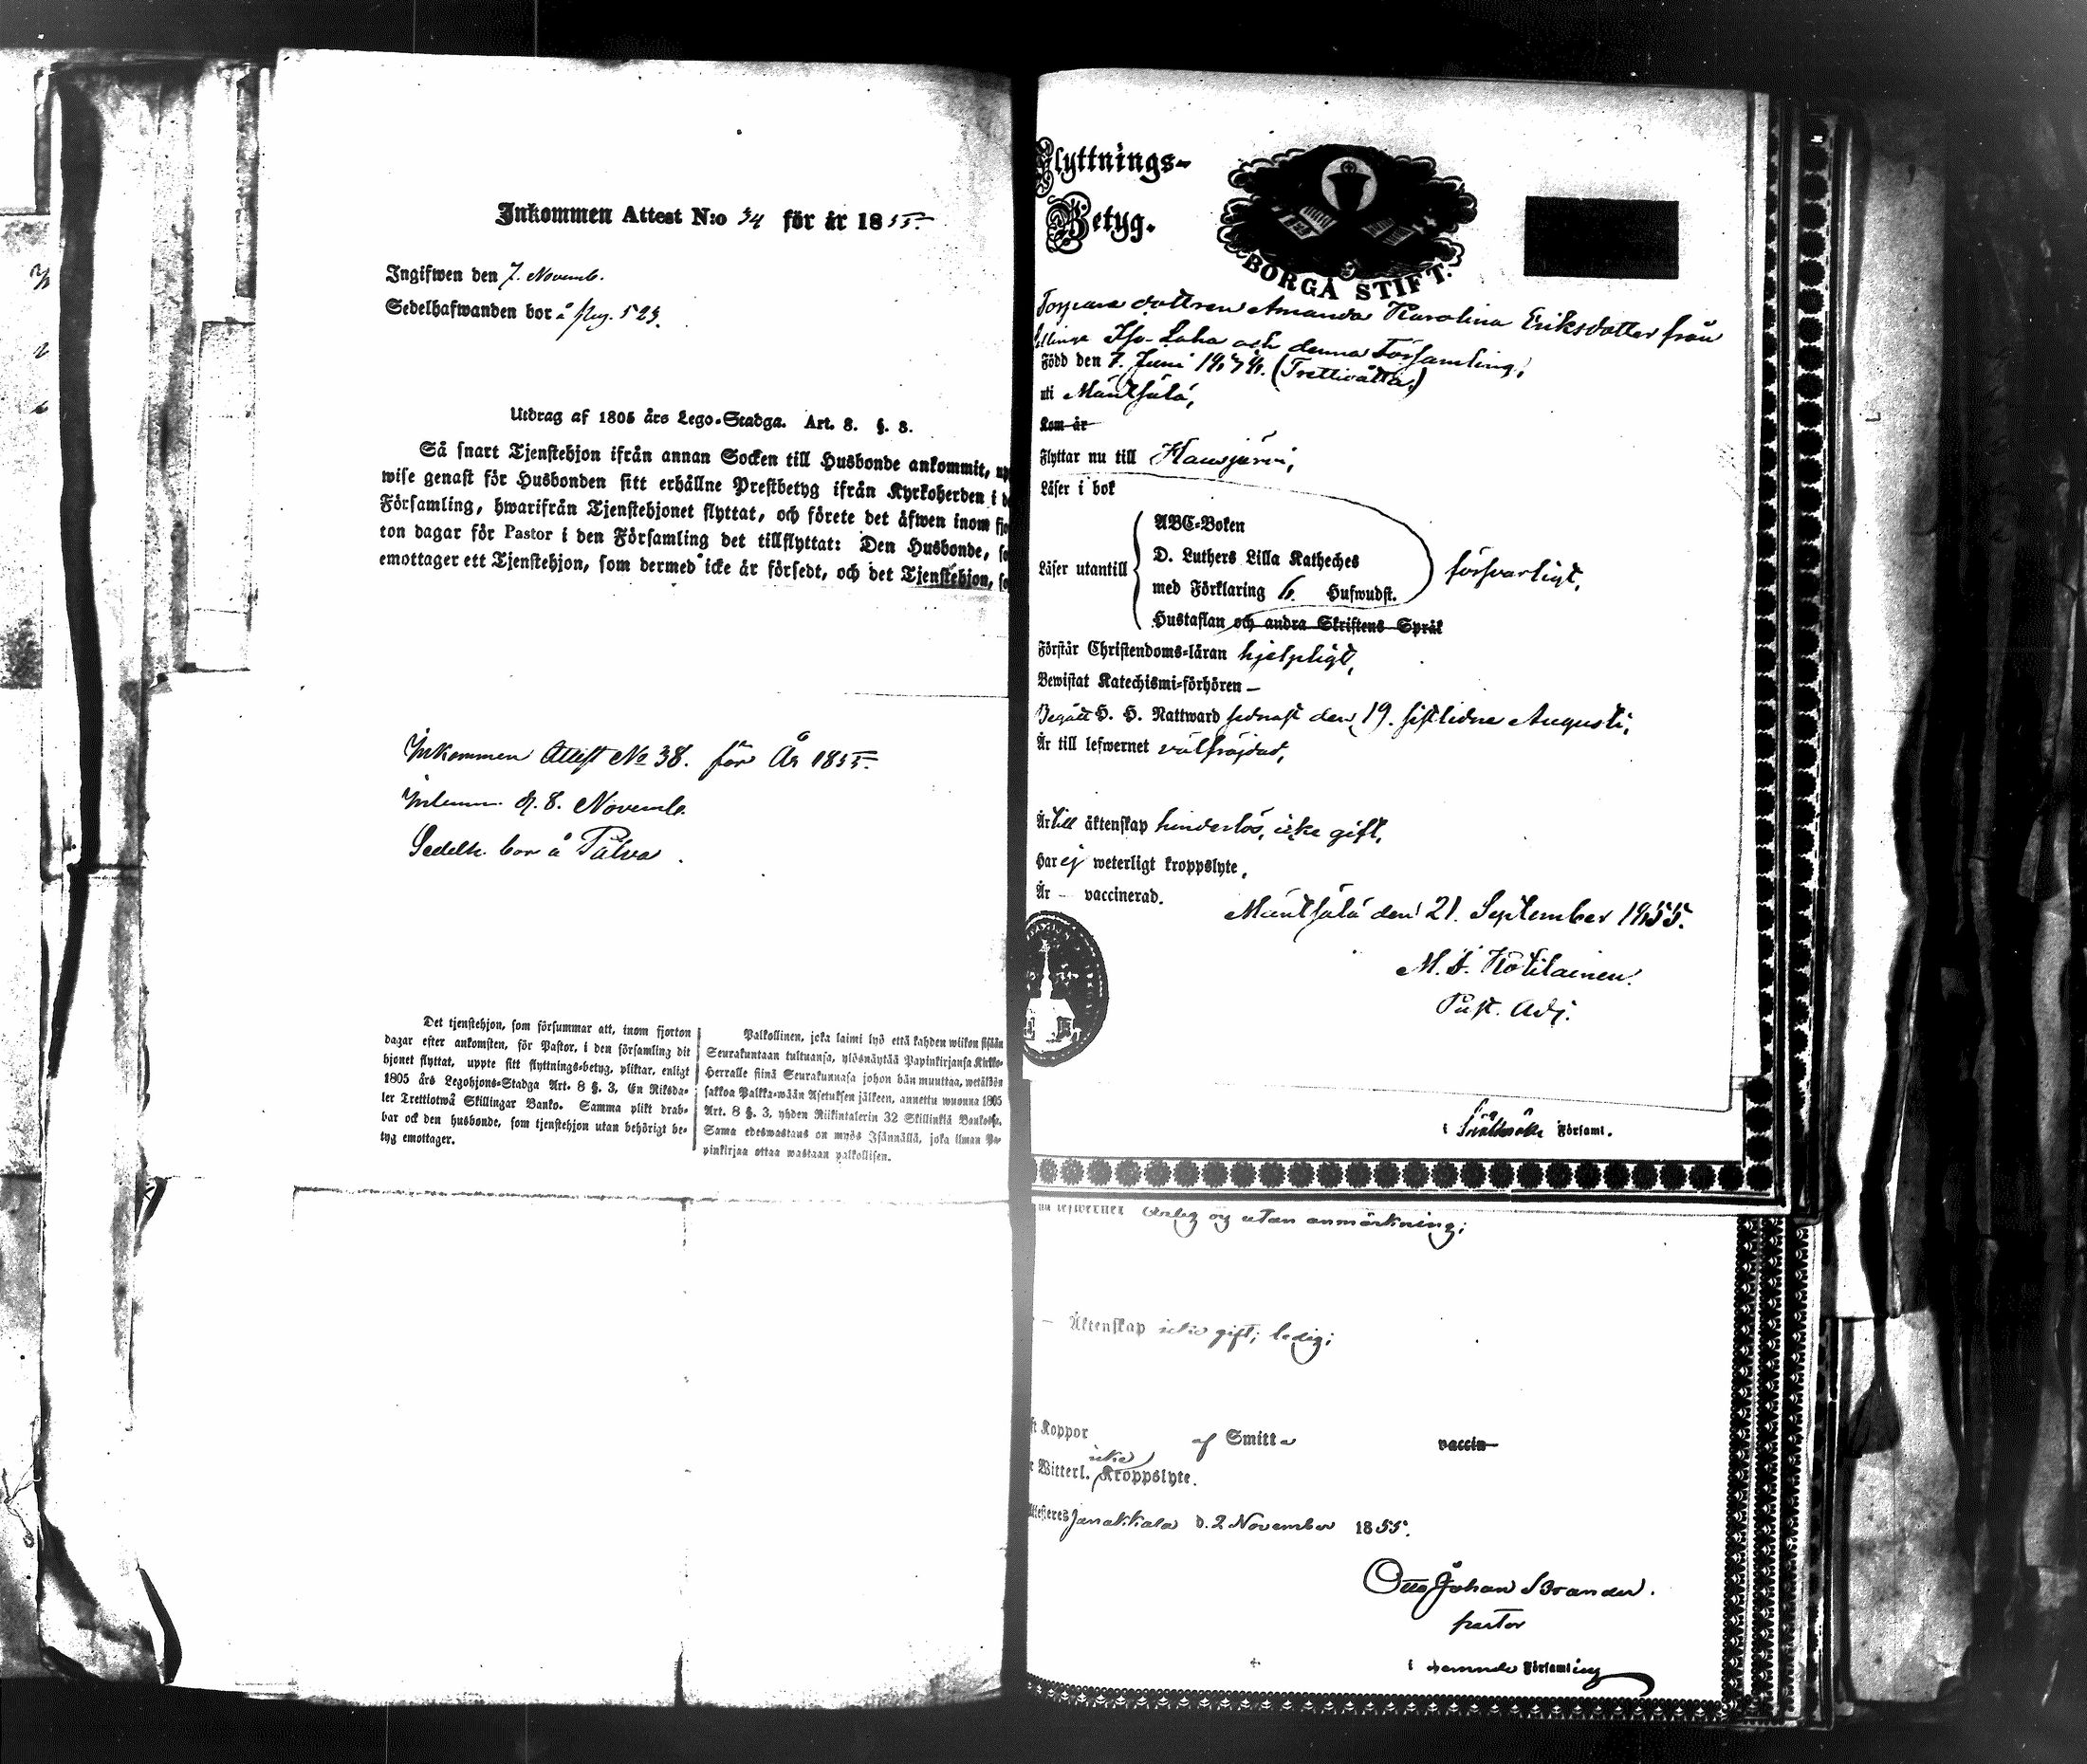 Inkommen Attest N:o 34 för år 1855.
Ingifwen den 7. Novemb.
Sedelhafwanden bor å pag. 523.
Utdrag af 1805 års Lego-Stadga. Art. 8. §. 8.
Så snart Tjenstehjon ifrån annan Socken till Husbonde ankommit, up
wise genast för Husbonden sitt erhållne Prestbetyg ifrån Kyrkoherden i d
Församling, hwarifrån Tjenstehjonet flyttat, och förete det äfwen inom fjo
ton dagar för Pastor i den Församling det tillflyttat: Den Husbonde, so
emottager ett Tjenstehjon, som dermed icke är försedt, och det Tjenstehjon, so
Inkommen Attest No 38. för År 1855.
Inlemn. d. 8. Novemb.
Sedelh. bor å Palva.
Det tjenstehjon, som försummar att, inom fjorton
dagar efter ankomsten, för Pastor, i den församling dit
hjonet flyttat, uppte sitt flyttnings-betyg, pliktar, enligt
1805 års Legohjons-Stadga Art. 8 §. 3, En Riksda-
ler Trettiotwå Skillingar Banko. Samma plikt drab-
bar ock den husbonde, som tjenstehjon utan behörigt be-
tyg emottager.
Palkollinen, joka laimi lyö että kahden wiikon sisään
Seurakuntaan tultuansa, ylösnäytää Papinkirjansa Kirkko-
Herralle siinä Seurakunnasa johon hän muuttaa, wetäköön
sakkoa Palkka-wään Asetuksen jälkeen, annettu wuonna 1805
Art. 8 §. 3, yhden Riikintalerin 32 Skillinkiä Bankosa.
Sama edeswastaus on myös Isännällä, joka ilman Pa-
pinkirjaa ottaa wastaan palkollisen.
Flyttnings-
Betyg.
BORGÅ STIFT.
Torpare dottren Amanda Karolina Eriksdotter från
Iso-Laha och denna Församling,
Född den 7. Juni 1838. (Trettioåtta,)
uti Mäntsälä,
Kom år
Flyttar nu till Hausjärvi,
Läser i bok
Läser utantill
ABC-Boken
D. Luthers Lilla Katheches
med Förklaring 6. Hufwudst.
Hustaflan och andra Skriftens Språk
försvarligt,
Förstår Christendoms-läran hjelpligt,
Bewistat Katechismi-förhören –
Begått H. H. Nattward sednast den 19. sistlidne Augusti,
Är till lefwernet välfrejdad,
Är till äktenskap hinderlös, icke gift,
Har ej weterligt kroppslyte,
Är – vaccinerad.
Mäntsälä den 21. September 1855.
M. Kotilainen.
Past. Adj.
i Församl.
lefwernet ärlig og utan anmärkning;
– Äktenskap icke gift; ledig;
Koppor af Smitta vaccin
Witterl. icke Kroppslyte.
Attesteres Janakkala d. 2 November 1855.
Otto Johan Brander.
pastor
i samma Församling